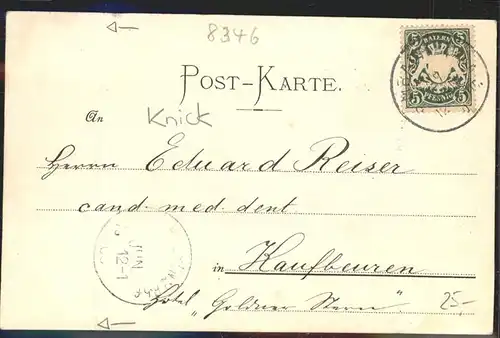 8346
BAYERN
5 PFENNIG 5
POST-KARTE.
Knick
An
Herrn Eduard Reiser
cand. med. dent
JUN
12-1
in Kaufbeuren
Hotel "Goldner Stern".
25,-